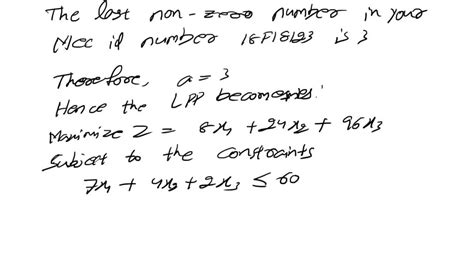 The last non-zero number in your
Mec id number 18F18193 is 3
Therefore, a = 3
Hence the LPP becomes:
Maximize Z = 8x₁ + 24x₂ + 96x₃
Subject to the constraints
7x₁ + 4x₂ + 2x₃ ≤ 60